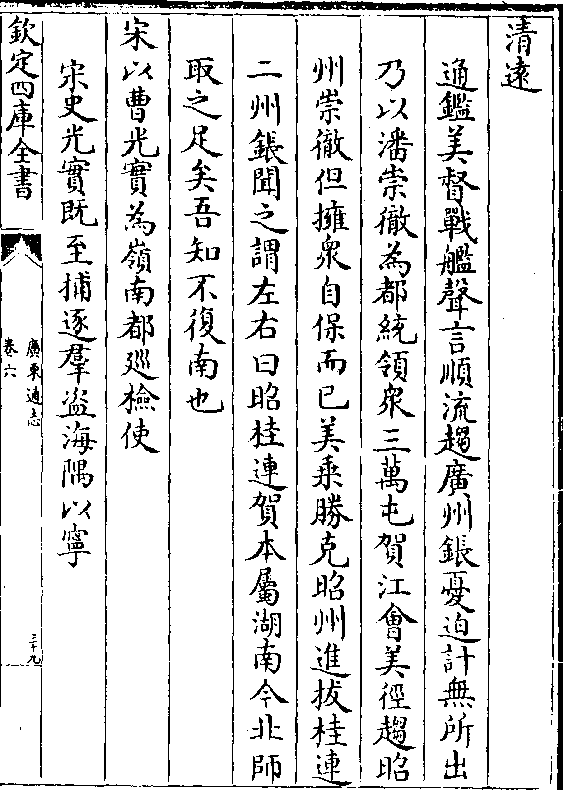 清遠
通鑑美督戰艦聲言順流趨廣州鋹憂迫計無所出
乃以潘崇徹為都統領衆三萬屯賀江會美徑趨昭
州崇徹但擁衆自保而已美乗勝克昭州進拔桂連
二州鋹聞之謂左右曰昭桂連賀本屬湖南今北師
取之足矣吾知不復南也
宋以曹光實為嶺南都廵檢使
宋史光實既至捕逐羣盗海隅以寧
欽定四庫全書
廣東通志
卷六
三十九